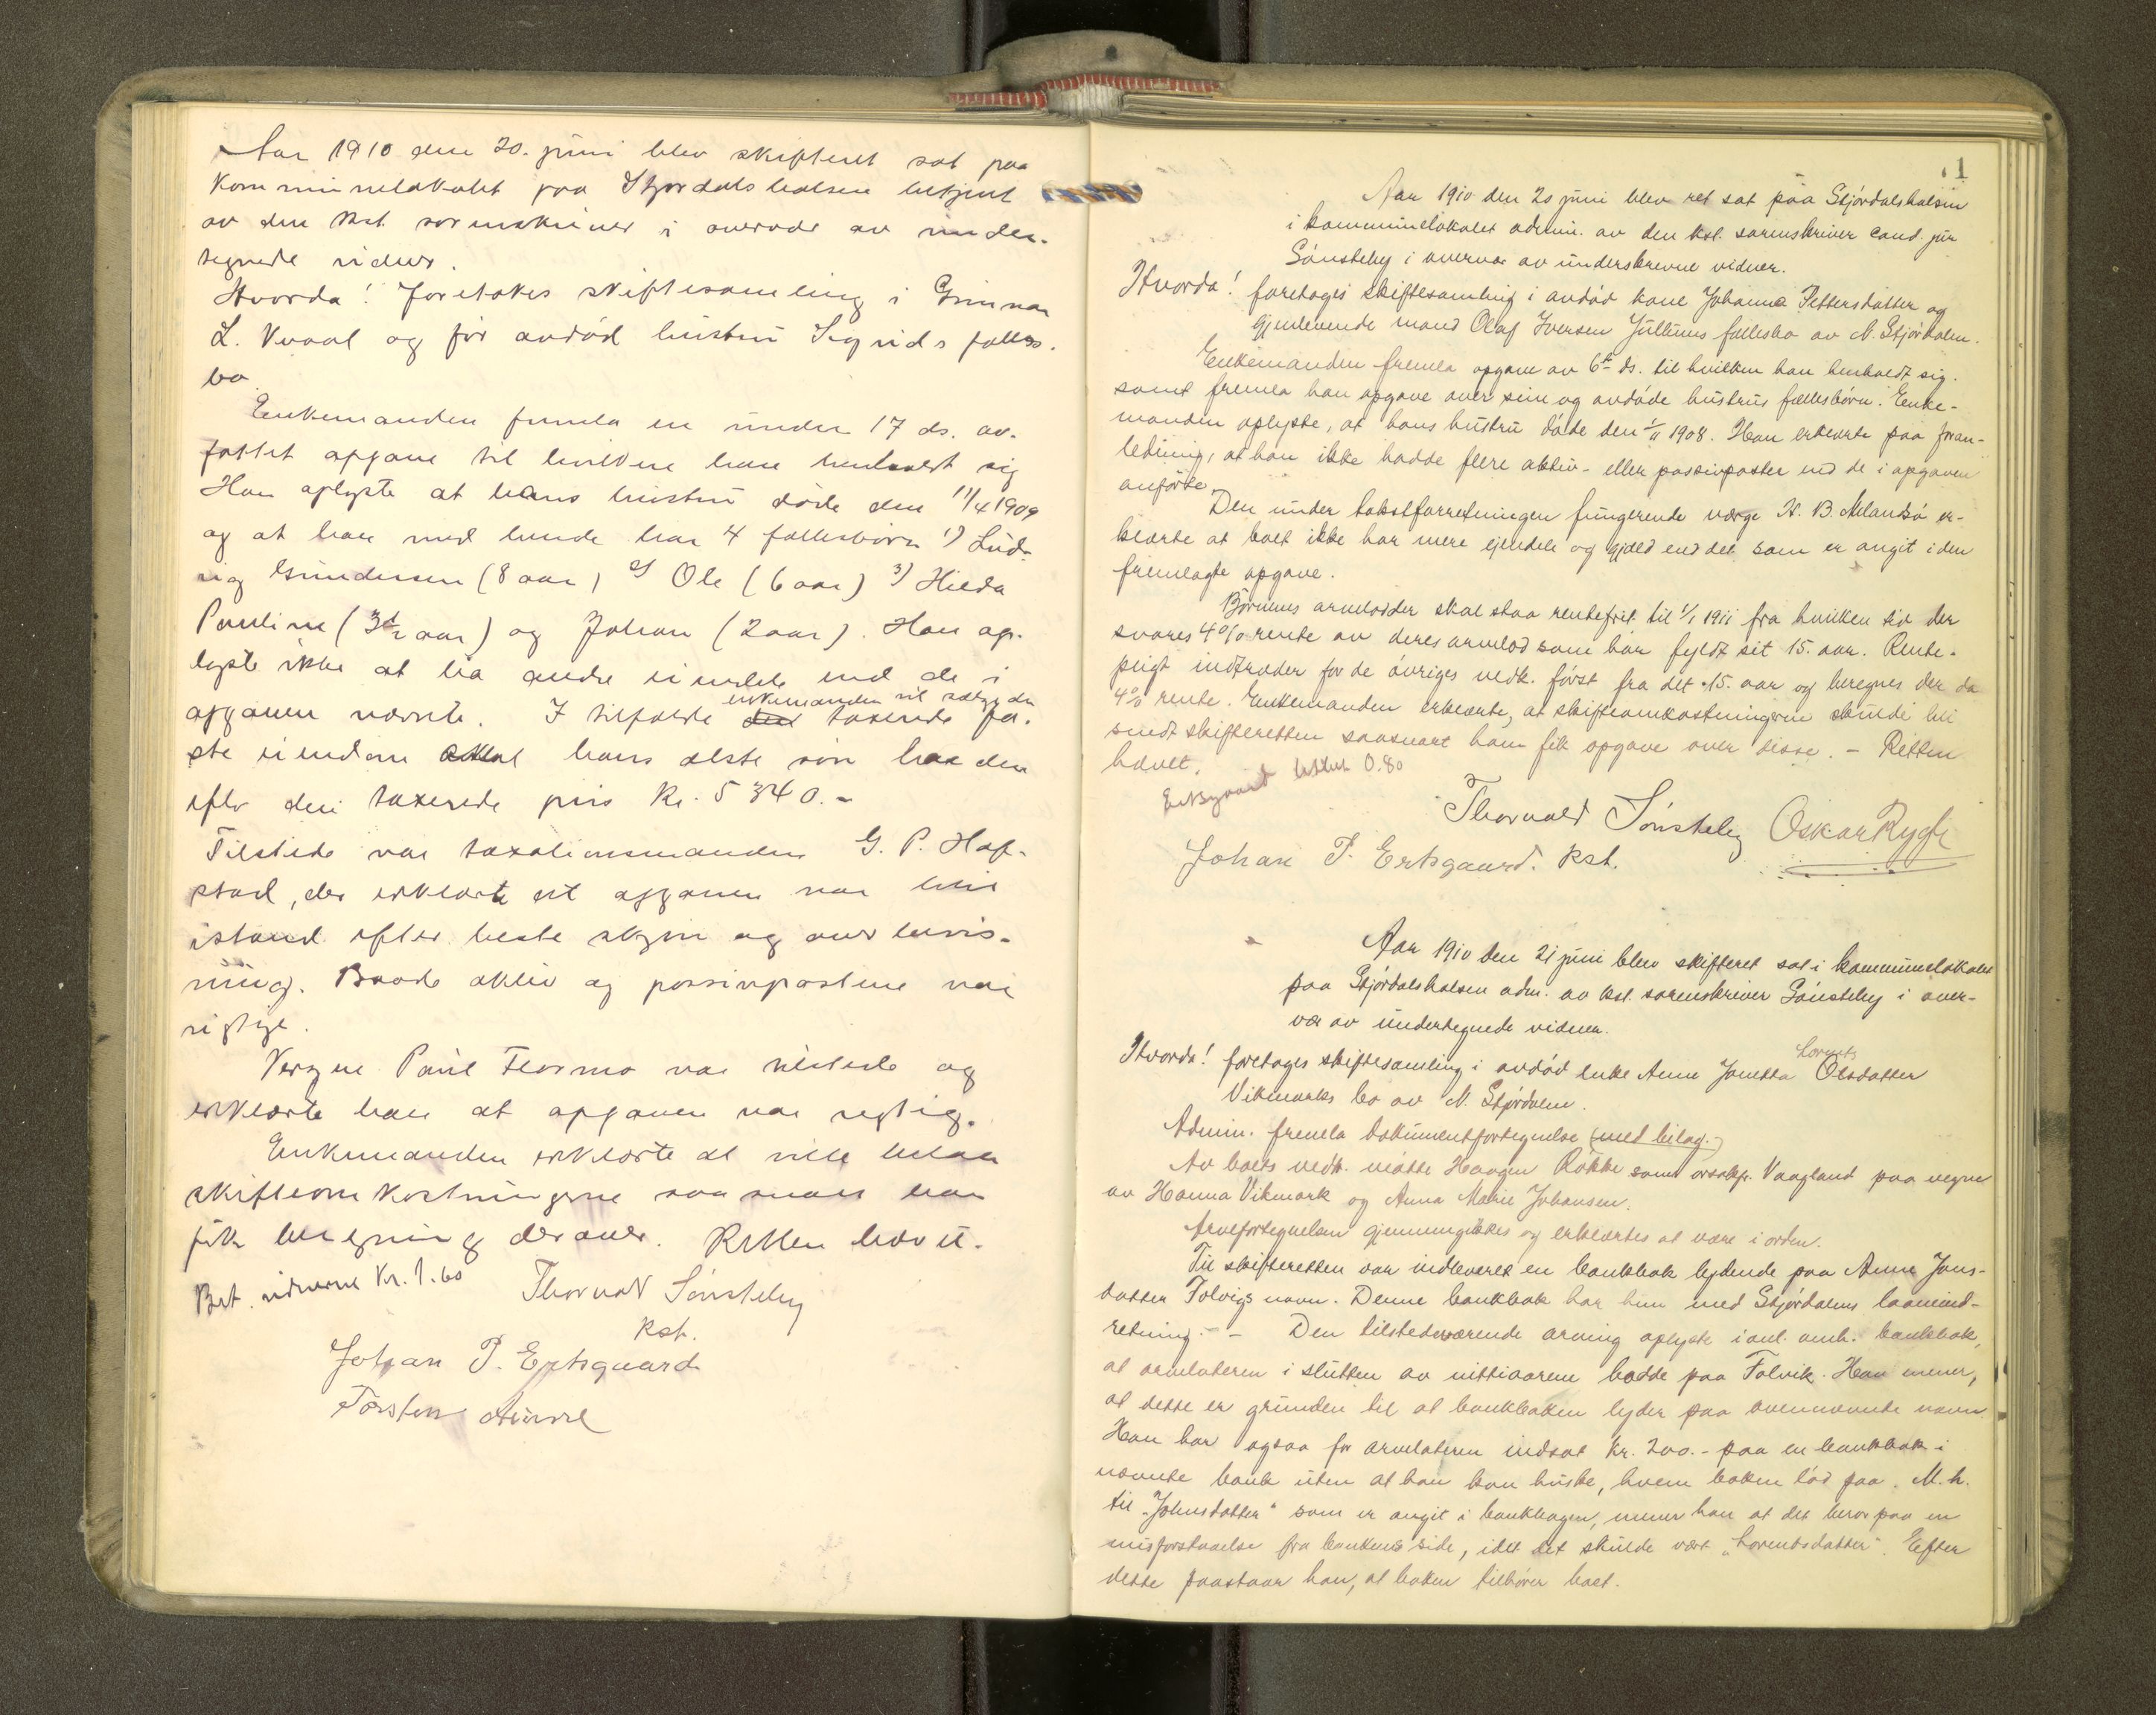 Aar 1910 den 20. juni blev skifteret sat paa
Kommunelokalet paa Stjørdalshalsen betjent
av den kst. sorenskriver i overvær av under-
tegnede vidner.
Hvorda! foretokes skiftesamling i Gunnar
L. Vuaal og før avdød hustru Sigrids fælles-
bo.
Enkemanden fremla en under 17 ds. av-
fattet opgave til hvilken han henholdt sig
Han oplyste at hans hustru døde den 11/4 1909
og at han med hende har 4 fællesbørn 1) Lud-
vig Gundersen (8 aar) 2) Ole (6 aar) 3) Hilda
Pauline (3 1/2 aar) og Johan (2 aar). Han op-
lyste ikke at ha andre eiendele end de i
enkemanden vil sælge den
opgaven nævnte. I tilfælde den taxerede fa-
ste eiendom skal hans ælste søn ha den
efter den taxerede pris Kr. 5340.-
Tilstede var taxationsmanden G. P. Hof-
stad, der erklærte at opgaven var blit
istand efter beste skjøn og overbevis-
ning. Baade aktiv og passivpostene var
rigtige.
Vergen Paul Flormo var tilstede og
erklærte han at opgaven var rigtig.
Enkemanden erklærte at ville betale
skifteomkostningerne saasnart han
fik beregning derover. Retten hævet.
Bet. vidnerne Kr. 1.60 Thorvald Sønsteby
kst.
Johan P. Ertsgaard
Torsten
1
Aar 1910 den 20 juni blev ret sat paa Stjørdalshalsen
i kommunelokalet admin. av den kst. sorenskriver cand. jur
Sønsteby i overvær av underskrevne vidner.
Hvorda! foretages skiftesamling i avdød kone Johanna Pettersdatter og
gjenlevende mand Olaf Iversen Jullums fællesbo av N. Stjørdalen.
Enkemanden fremla opgave av 6te ds. til hvilken han henholdt sig.
samt fremla han opgave over sine og avdøde hustrus fællesbørn. Enke-
manden oplyste, at hans hustru døde den 1/11 1908. Han erklærte paa foran-
ledning, at han ikke hadde flere aktiv- eller passivposter end de i opgaven
anførte.
Den under takstforretningen fungerende værge N. B. Melandsø er-
klærte at boet ikke har mere eiendele og gjæld end det som er angit i den
fremlagte opgave.
Børnenes arvelodder skal staa rentefrit til 1/1 1911 fra hvilken tid der
svares 4% rente av deres arvelod som har fyldt sit 15. aar. Rente-
pligt indtræder for de øvriges vedk. først fra det 15. aar og beregnes der da
4% rente. Enkemanden erklærte, at skifteomkostningerne skulde bli
sendt skifteretten saasnart han fik opgave over disse. - Retten
hævet.
Ertsgaard betalt 0.80
Thorvald Sønsteby Oskar Rygh
Johan P. Ertsgaard. kst.
Aar 1910 den 21 juni blev skifteret sat i kommunelokalet
paa Stjørdalshalsen adm. av kst. sorenskriver Sønsteby i over-
vær av undertegnede vidner.
Hvorda! foretages skiftesamling i avdød enke Anne Janetta Olsdatter
Lorents
Vikmarks bo av N. Stjørdalen.
Admin. fremla dokumentfortegnelse (med bilag.-)
Av boets vedk. møtte Haagen Røkke samt orsakfr. Vaagland paa vegne
av Hanna Vikmark og Anna Marie Johansen.
Arvefortegnelsen gjennemgikkes og erklærtes at være i orden.
Til skifteretten var indleveret en bankbok lydende paa Anne Jons-
datter Folvigs navn. Denne bankbok har hun med Stjørdalens laaneind-
retning. - Den tilstedeværende arving oplyste i anl. omh. bankbok,
at arvelateren i slutten av nittiaarene bodde paa Folvik. Han mener,
at dette er grunden til at bankboken lyder paa ovennævnte navn.
Han har ogsaa for arvelateren indsat Kr. 200.- paa en bankbok i
nævnte bank uten at han kan huske, hvem boken lød paa. M.h.
til "Johnsdatter" som er angit i bankbogen, mener han at det beror paa en
misforstaaelse fra bankens side, idet det skulde vært "Lorentsdatter". Efter
dette paastaar han, at boken tilhører boet.